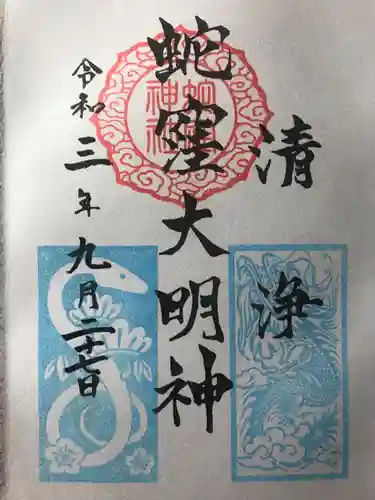 清浄
蛇窪大明神
蛇窪神社
令和三年九月二十七日